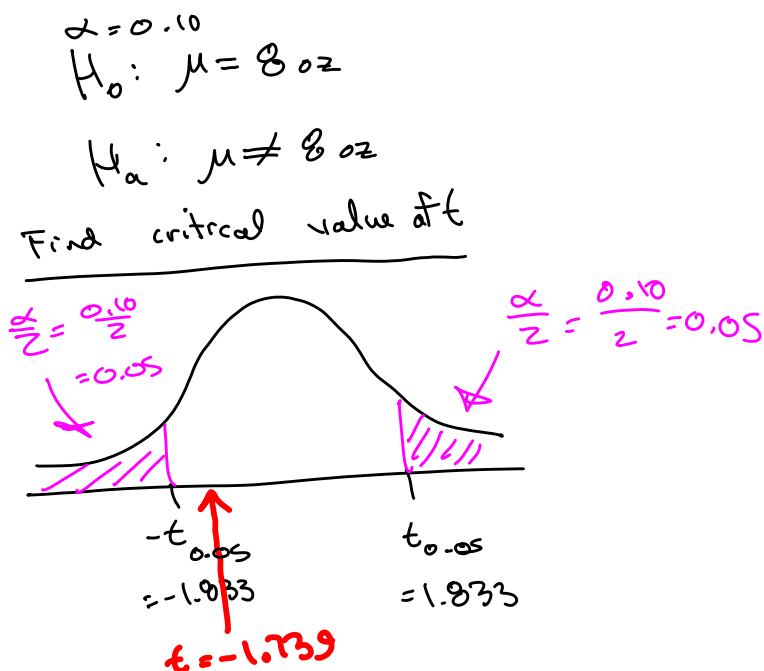 α = 0.10
H₀: μ = 8 oz
Hₐ: μ ≠ 8 oz
Find critical value of t
α/2 = 0.10/2
= 0.05
α/2 = 0.10/2 = 0.05
-t₀.₀₅
= -1.833
t₀.₀₅
= 1.833
t = -1.739